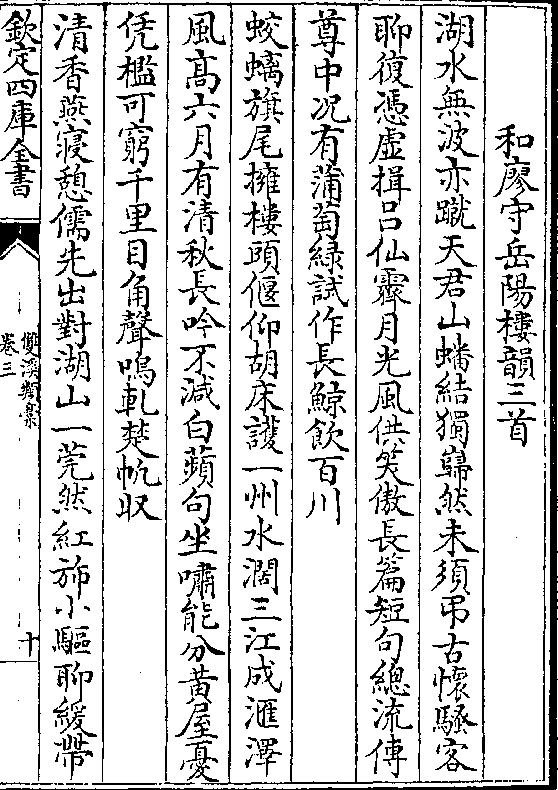 和廖守岳陽樓韻三首
湖水無波亦蹴天君山蟠結獨巋然未須弔古懷騷客
聊復憑虛揖吕仙霽月光風供笑傲長篇短句總流傳
尊中况有蒲萄緑試作長鯨飲百川
蛟螭旗尾擁樓頭偃仰胡床護一州水濶三江成滙澤
風髙六月有清秋長吟不減白蘋句坐嘯能分黄屋憂
凭檻可窮千里目角聲嗚軋楚帆収
清香燕寢憩儒先出對湖山一莞然紅斾小驅聊緩帶
欽定四庫全書
雙溪類藁
卷三
十